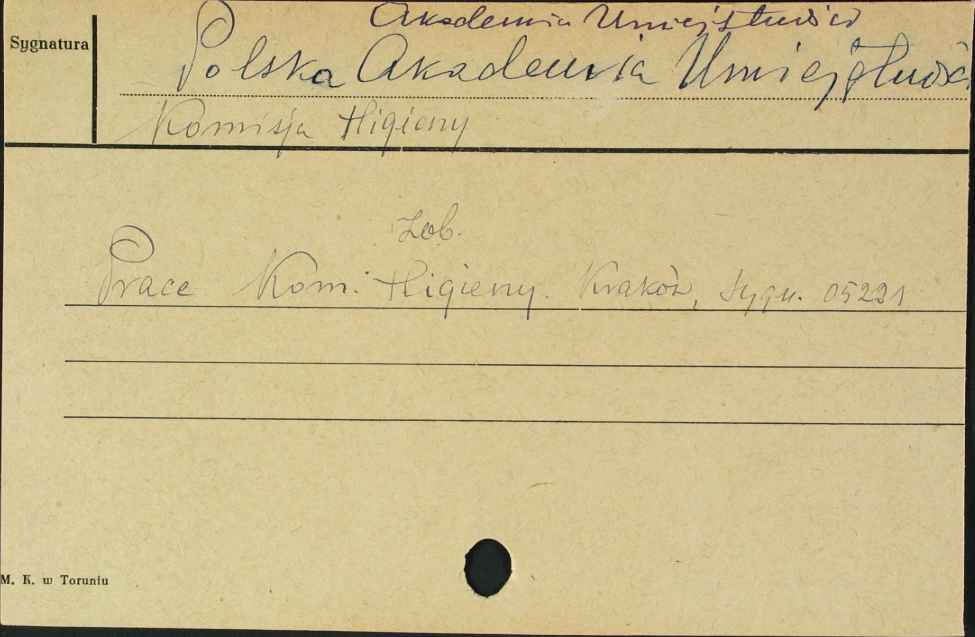 Akademia Umiejętności
Sygnatura
Polska Akademia Umiejętności
Komisja Higieny
Zob.
Prace Kom. Higieny. Kraków, sygn. 05221
M. K. w Toruniu